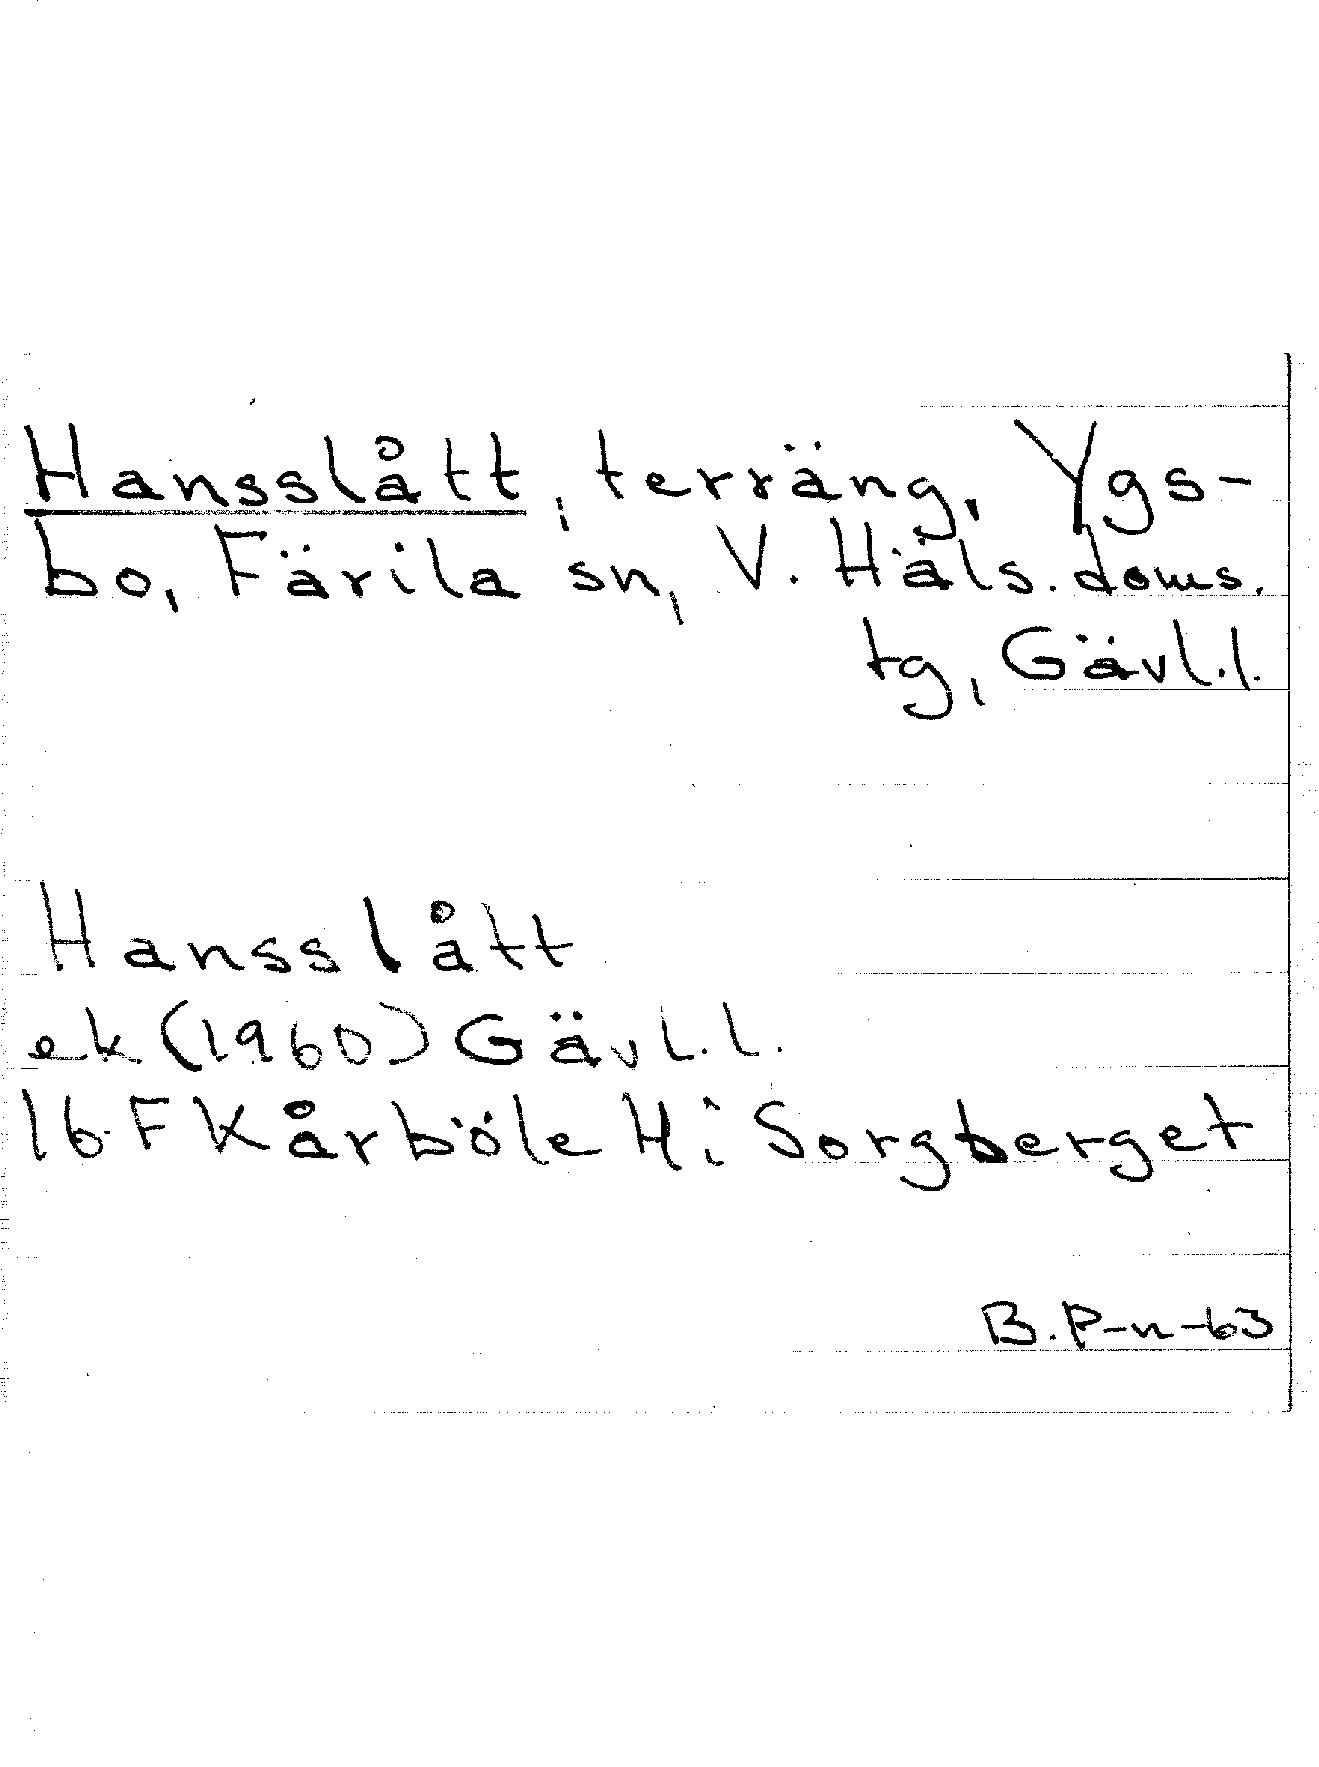 Hansslått, terräng, Ygs-
bo, Färila sn, V. Häls. doms.
tg, Gävl.l.
Hansslått
ek (1960) Gävl.l.
16 F Kårböle Hi Sorgberget
B. P-n-63